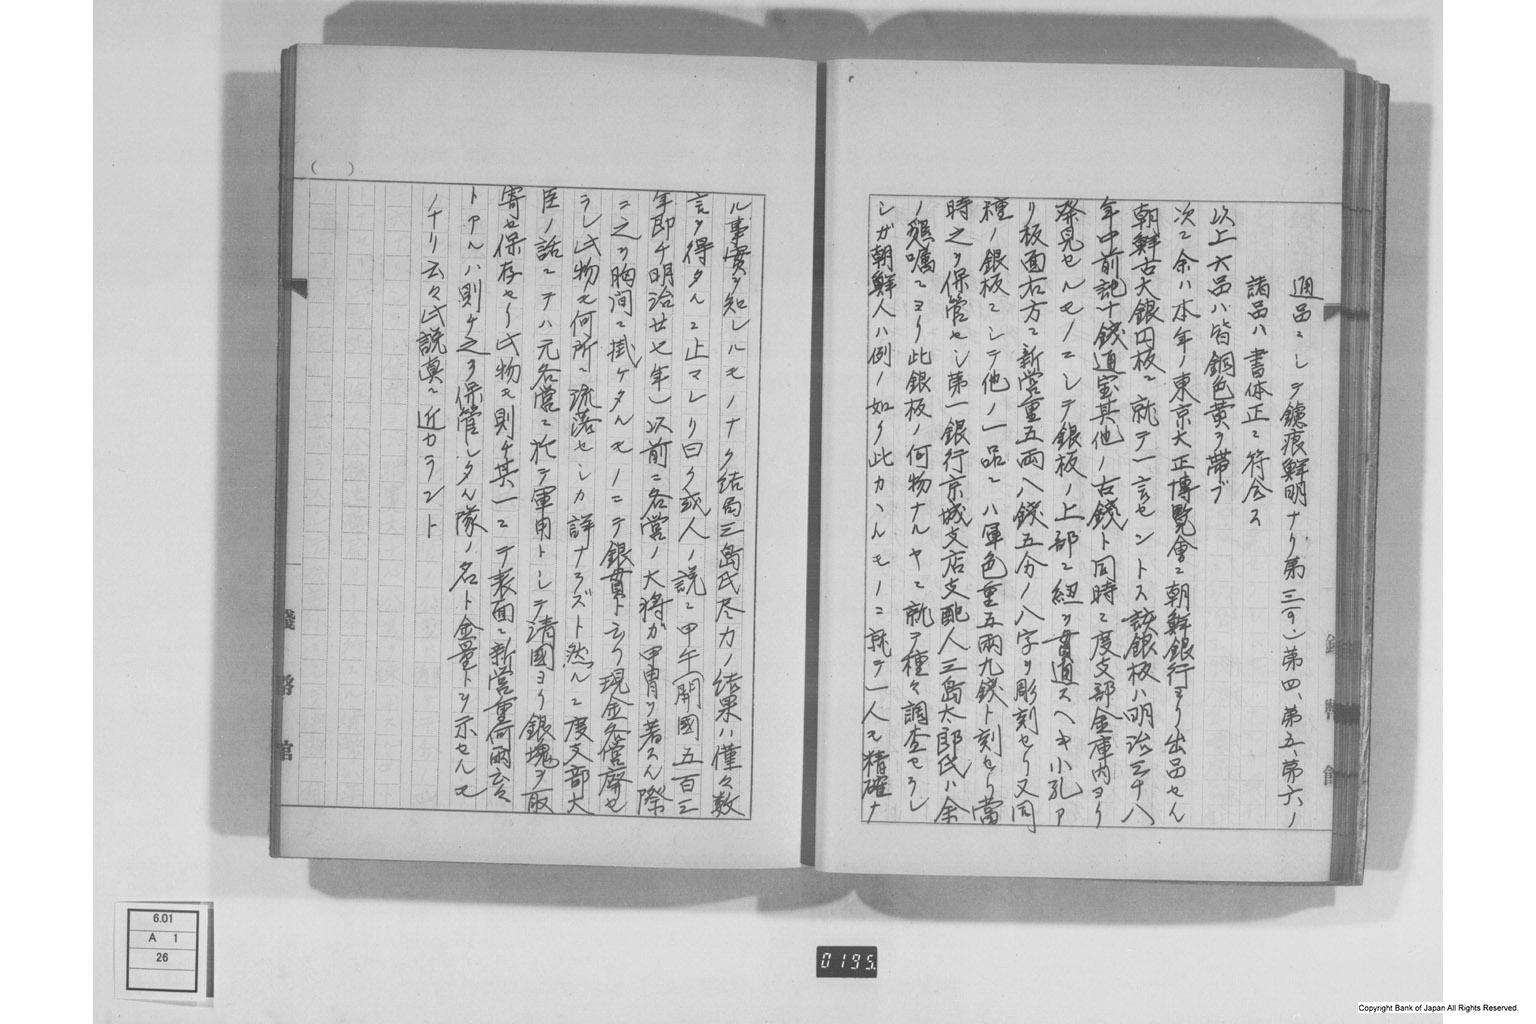 通品ニシテ鑢痕鮮明ナリ第三(イ)、第四、第五、第六ノ
諸品ハ書体正ニ符合ス
以上六品ハ皆銅色黄ヲ帯ブ
次ニ余ハ本年ノ東京大正博覧會ニ朝鮮銀行ヨリ出品セル
朝鮮古大銀円板ニ就テ一言セントス該銀板ハ明治三十八
年中前記十錢通宝其他ノ古錢ト同時ニ度支部金庫内ヨリ
発見セルモノニシテ銀板ノ上部ニ紐ヲ貫通スヘキ小孔ア
リ板面右方ニ新営重五両八錢五分ノ八字ヲ彫刻セリ又同
種ノ銀板ニシテ他ノ一品ニハ軍色重五両九錢ト刻セリ當
時之ヲ保管セシ第一銀行京城支店支配人三島太郎氏ハ余
ノ懇嘱ニヨリ此銀板ノ何物ナルヤニ就テ種々調査セラレ
シガ朝鮮人ハ例ノ如ク此カヽルモノニ就テ一人モ精確ナ
ル事実ヲ知レルモノナク結局三島氏尽力ノ結果ハ僅々数
言ヲ得タルニ止マレリ曰ク或人ノ説ニ甲午(開國五百三
年即チ明治廿七年)以前ニ各営ノ大将ガ甲冑ヲ著スル際
ニ之ヲ胸間ニ掛ケタルモノニテ銀貫ト云フ現金各営廃セ
ラレ此物モ何所ニ流落セシカ詳ナラズト然ルニ度支部大
臣ノ話ニテハ元各営ニ於テ軍用トシテ清國ヨリ銀塊ヲ取
寄セ保存セリ此物モ則チ其一ニテ表面ニ新営重何両云々
トアルハ則チ之ヲ保管シタル隊ノ名ト金量トヲ示セルモ
ノナリ云々此説真ニ近カラント
( )
錢幣館
錢幣館
6.01
A 1
26
0195.
Copyright Bank of Japan All Rights Reserved.